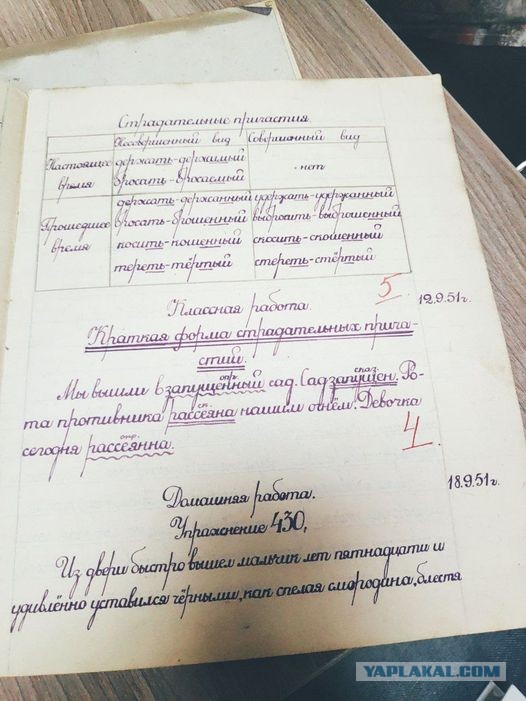 Страдательные причастия
Несовершенный вид Совершенный вид
Настоящее держать-держимый нет
время бросать-бросаемый
держать-держанный удержать-удержанный
Прошедшее бросать-брошенный выбросить-выброшенный
время косить-кошенный скосить-скошенный
тереть-тёртый стереть-стёртый
5
Классная работа. 12.9.51г.
Краткая форма страдательных прича-
стий.
опр. сказ.
Мы вышли в запущенный сад. Сад запущен. Ро-
ск.
та противника рассеяна нашим огнём. Девочка
опр.
сегодня рассеянна.
4
Домашняя работа. 18.9.51г.
Упражнение 430,
Из двери быстро вышел мальчик лет пятнадцати и
удивлённо уставился чёрными, как спелая смородина, блестя
YAPLAKAL.COM